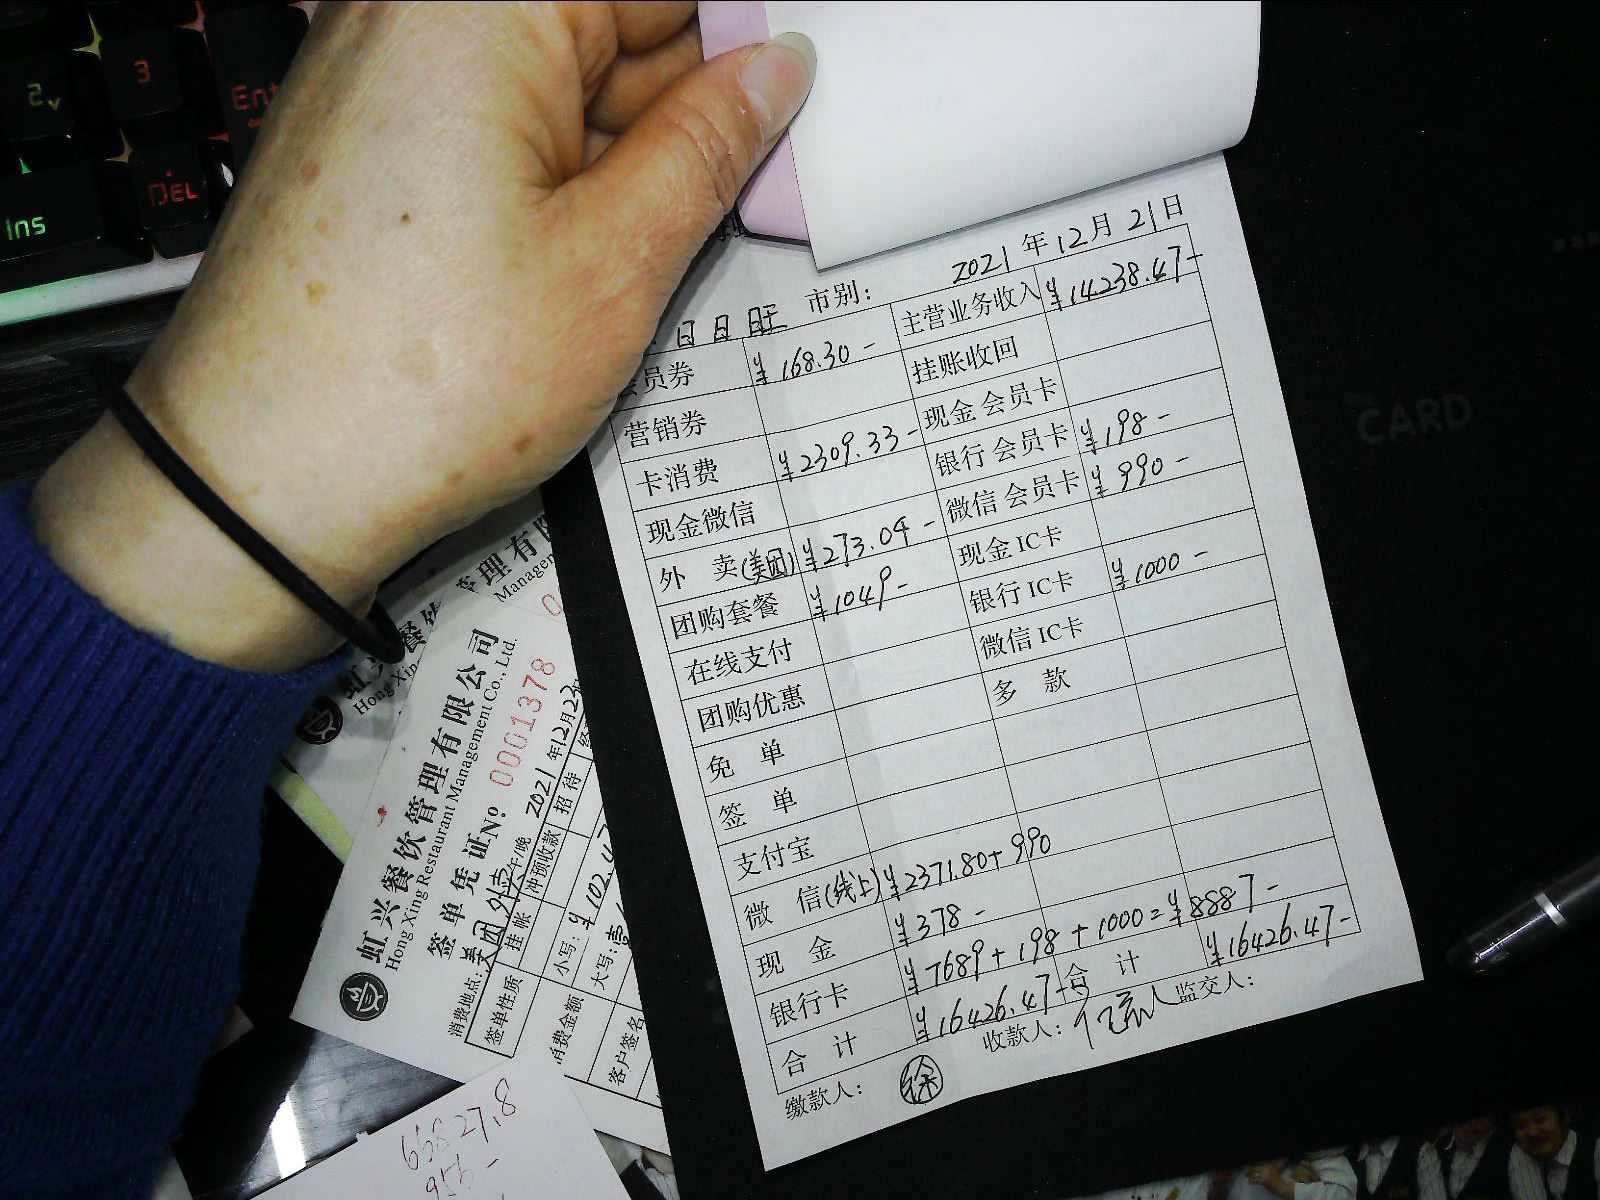 2
3
Ent
DEL
Ins
CARD
2021年12月21日
日日旺 市别：
员券 ¥168.30- 主营业务收入 ¥14238.47-
营销券 挂账收回
卡消费 ¥2309.33- 现金会员卡
现金微信 银行会员卡 ¥198-
外卖(美团) ¥273.04- 微信会员卡 ¥990-
团购套餐 ¥1049- 现金IC卡
在线支付 银行IC卡 ¥1000-
团购优惠 微信IC卡
免单 多款
签单
支付宝
微信(线上) ¥2371.80+990
现金 ¥378-
银行卡 ¥7689+198+1000=¥8887-
合计 ¥16426.47- 合计 ¥16426.47-
缴款人： 徐 收款人： 监交人：
管理有限
Managemen
虹兴餐饮
Hong Xin
虹兴餐饮管理有限公司
Hong Xing Restaurant Management Co., Ltd.
签单凭证 No 0001378
消费地点：美团外卖 午/晚 2021年12月23
签单性质 挂帐 冲预收款 招待
消费金额 小写：¥102.4
大写：壹
客户签名
66827.8
956-